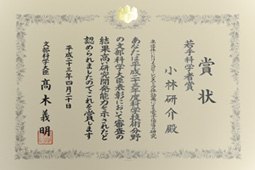 賞状
若手科学者賞
小林研介殿
あなたは平成二十三年度科学技術分野
の文部科学大臣表彰において審査の
結果高い研究開発能力を示されたと
認められましたのでこれを賞します
平成二十三年四月二十日
文部科学大臣
髙木義明